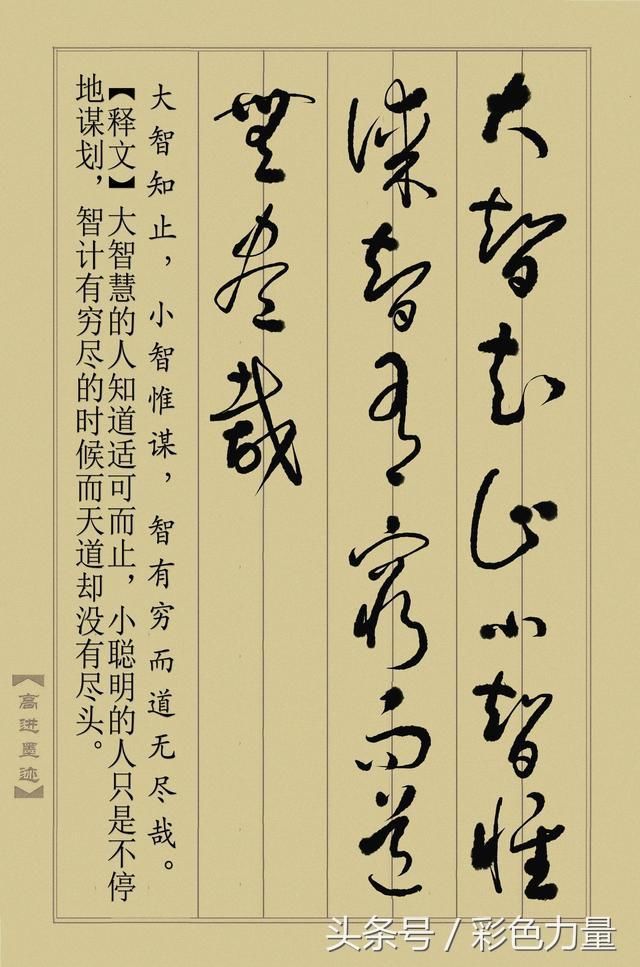 大智知止小智惟
谋智有穷而道
無尽哉
大智知止，小智惟谋，智有穷而道无尽哉。
【释文】大智慧的人知道适可而止，小聪明的人只是不停
地谋划，智计有穷尽的时候而天道却没有尽头。
【高进墨迹】
头条号 / 彩色力量